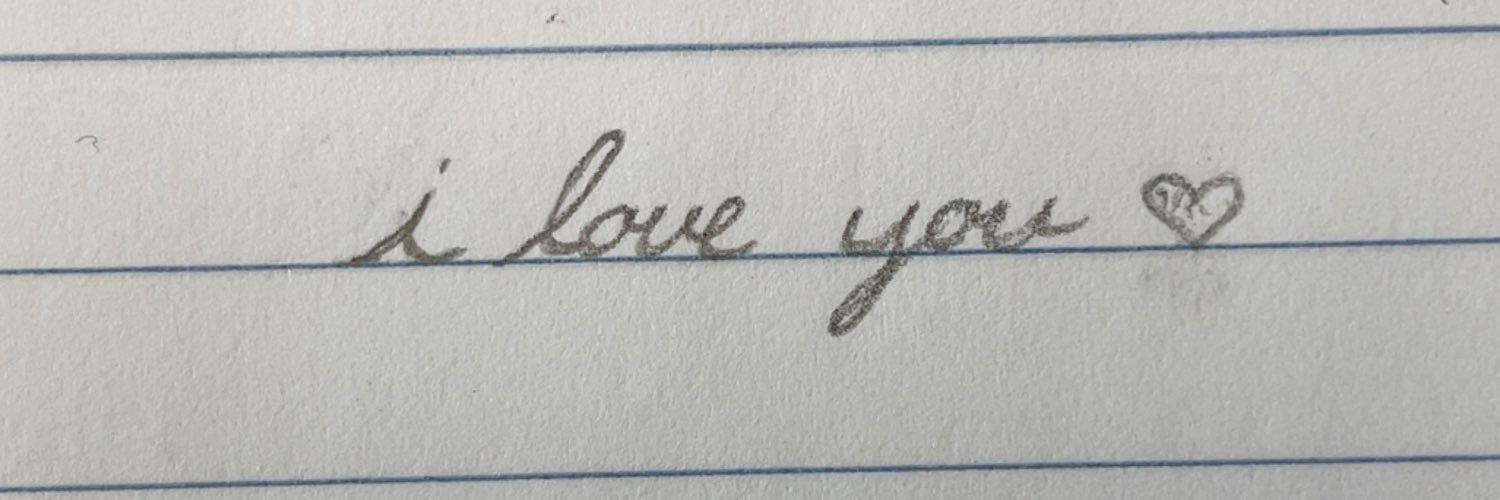 i love you ♡